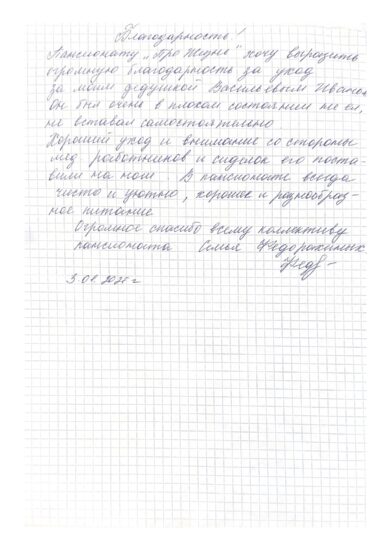 Благодарность!
Пансионату „Про Жизнь" хочу выразить
огромную благодарность за уход
за моим дедушкой Васильевым Иваном
он был очень в плохом состоянии не ел,
не вставал самостоятельно
Хороший уход и внимание со стороны
мед работников и сиделок его поста-
вили на ноги. В пансионате всегда
чисто и уютно, хорошее и разнообраз-
ное питание
Огромное спасибо всему коллективу
пансионата Семья